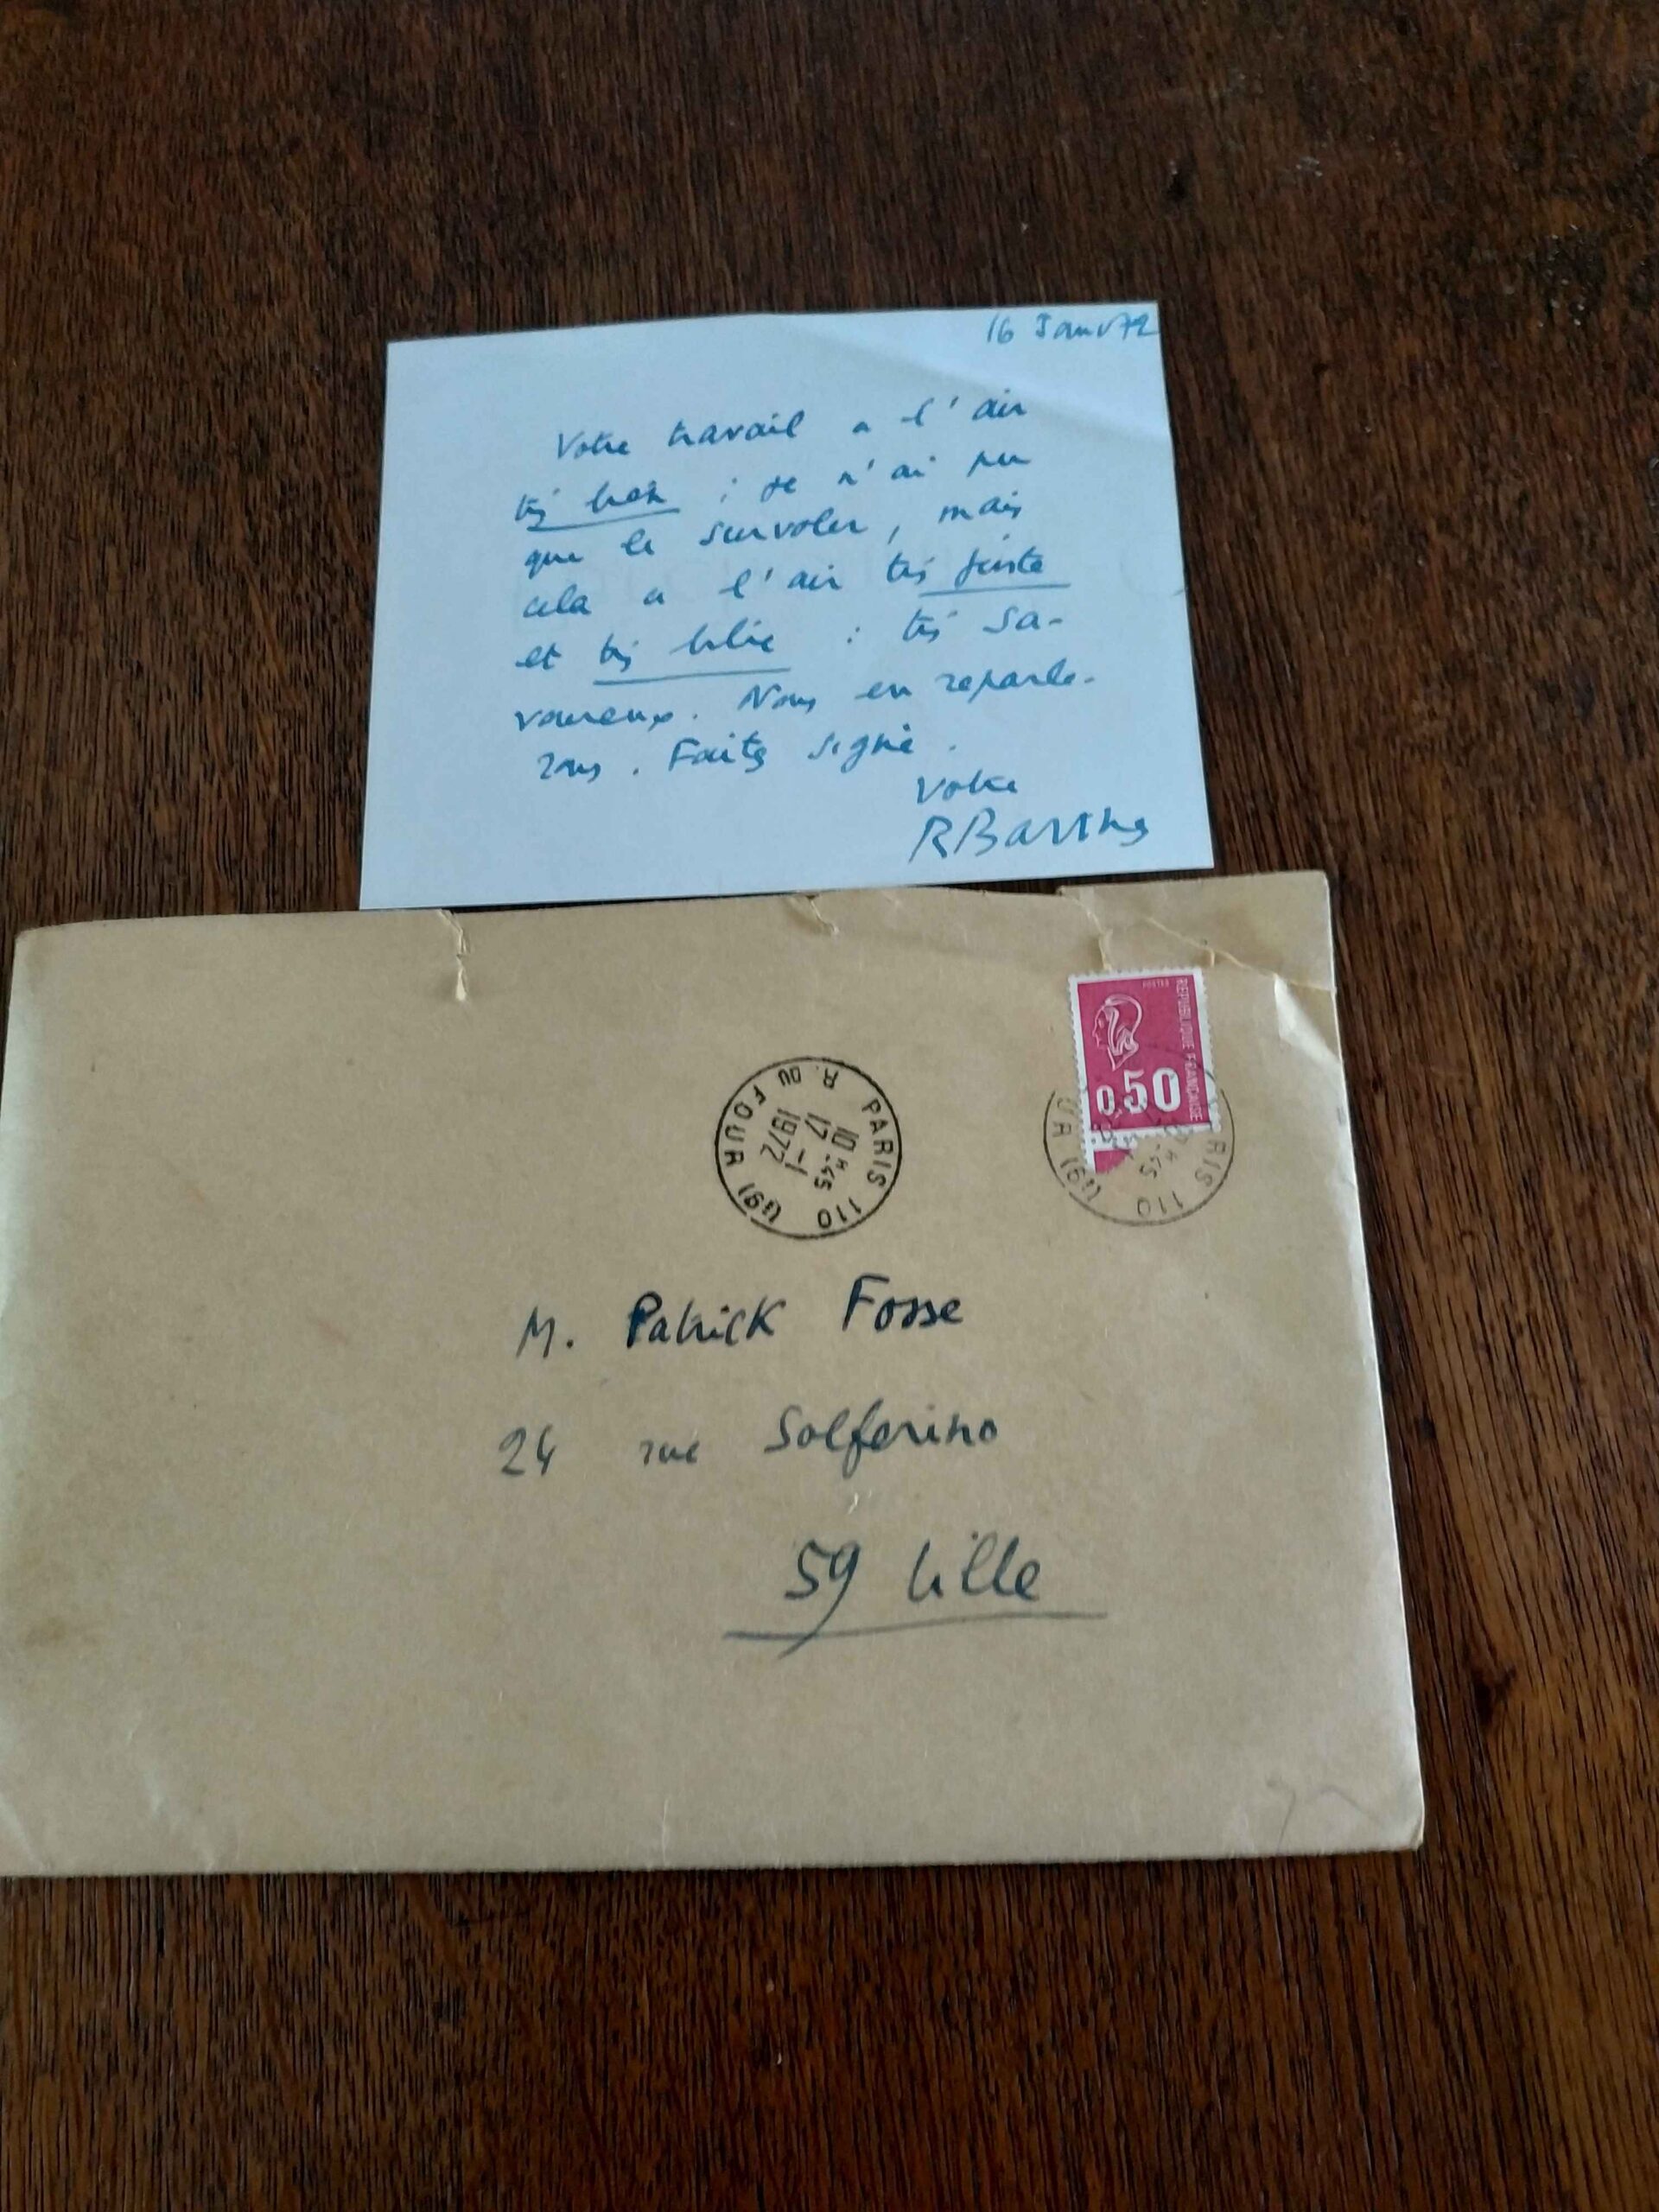 16 Janv 72
Votre travail a l'air
très bon ; je n'ai pu
que le survoler, mais
cela a l'air très juste
et très libre : très sa-
voureux. Nous en reparle-
rons. Faites signe.
Votre
RBarthes
POSTES
REPUBLIQUE FRANÇAISE
0.50
PARIS 110
R. DU FOUR (6e)
10H45
17-1
1972
RIS 110
UR (6e)
M. Patrick Fosse
24 rue Solferino
59 Lille